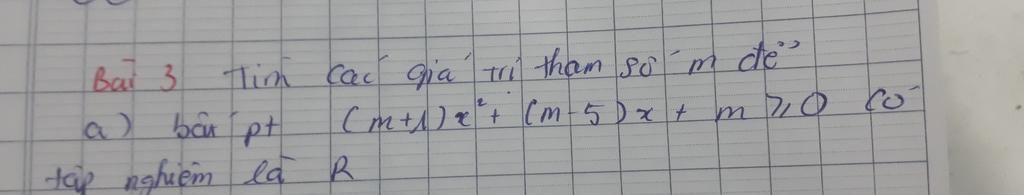 Bài 3 Tìm các giá trị tham số m để
a) bất pt (m+1)x² + (m-5)x + m ⩾ 0 có
tập nghiệm là R